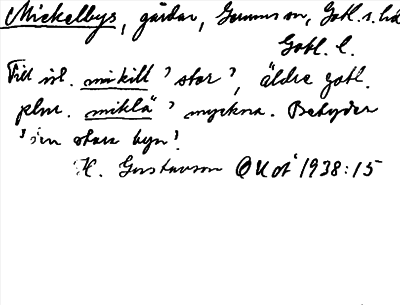 Mickelbys, gårdar, Gammelgarn, Gotl. s. hd
Gotl. l.
Till isl. mikill 'stor', äldre gotl.
plur. miklä 'myckna. Betyder
'den stora byn'.
H. Gustavson GUot 1938:15